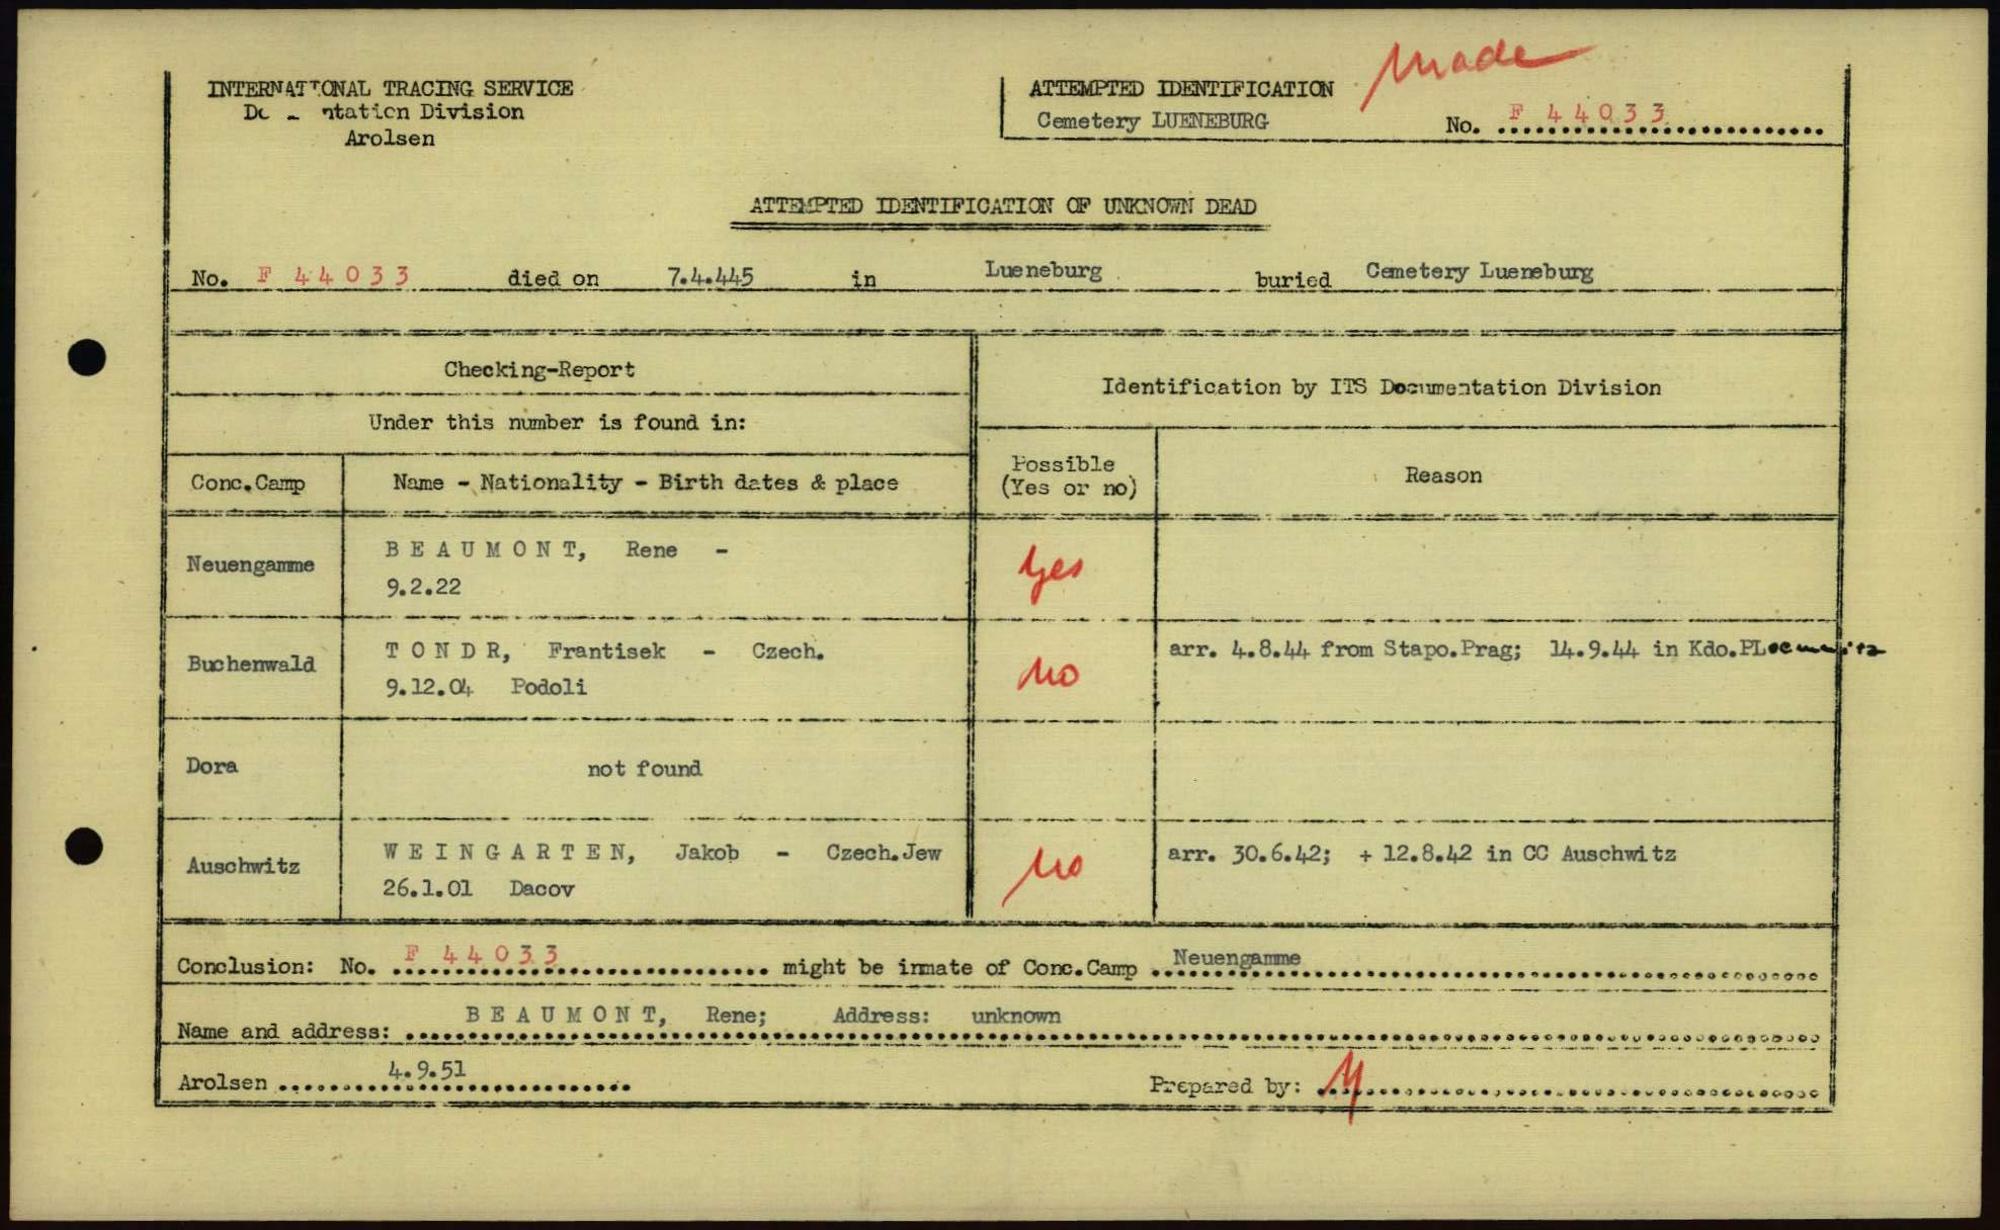 made
INTERNATIONAL TRACING SERVICE
Division
Arolsen
ATTEMPTED IDENTIFICATION
Cemetery LUENEBURG
No. F 44033
ATTEMPTED IDENTIFICATION OF UNKNOWN DEAD
No. F 44033 died on 7.4.445 in Lueneburg buried Cemetery Lueneburg
Checking-Report
Identification by ITS Documentation Division
Under this number is found in:
Conc.Camp Name - Nationality - Birth dates & place Possible (Yes or no) Reason
Neuengamme BEAUMONT, Rene - yes
9.2.22
Buchenwald TONDR, Frantisek - Czech. no arr. 4.8.44 from Stapo.Prag; 14.9.44 in
9.12.04 Podoli
Dora not found
Auschwitz WEINGARTEN, Jakob - Czech.Jew no arr. 30.6.42; + 12.8.42 in CC Auschwitz
26.1.01 Dacov
Conclusion: No. F 44033 might be inmate of Conc.Camp Neuengamme
Name and address: BEAUMONT, Rene; Address: unknown
Arolsen 4.9.51 Prepared by: